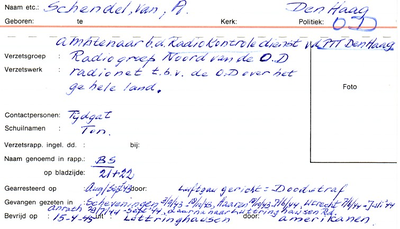 Naam etc.: Schendel, van, A. Den Haag
Geboren: te Kerk: Politiek: OD
amptenaar b.d. Radio Kontrole dienst v.d. PTT Den Haag
Verzetsgroep : Radio groep Noord van de O.D
Verzetswerk : radio net t.b.v. de O.D over het
gehele land.
Foto
Contactpersonen: Tijdgat
Schuilnamen : Ton.
Verzetsrapp. ingel. dd. : bij:
Naam genoemd in rapp.: BS
op bladzijde: 21+22
Gearresteerd op Aug/Sept 43 door: Luftgau gericht = Doodstraf
Gevangen gezeten in: Scheveningen Haaren
Anrath Sept '44 daarna naar Luttringhausen
Bevrijd op : 15-4-45 Lüttringhausen door: amerikanen